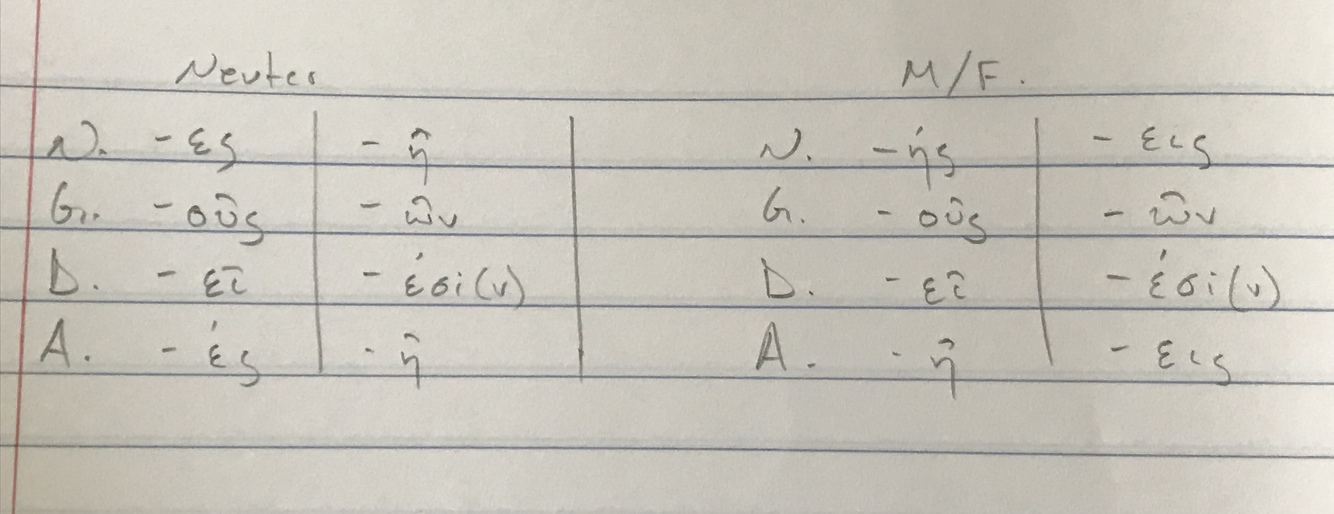 Neuter M/F.
N. -ες - ῆ N. -ής - εις
G. - οῦς - ῶν G. - οῦς - ῶν
D. - εῖ - έσι(ν) D. - εῖ - έσι(ν)
A. - ές - ῆ A. - ῆ - εις